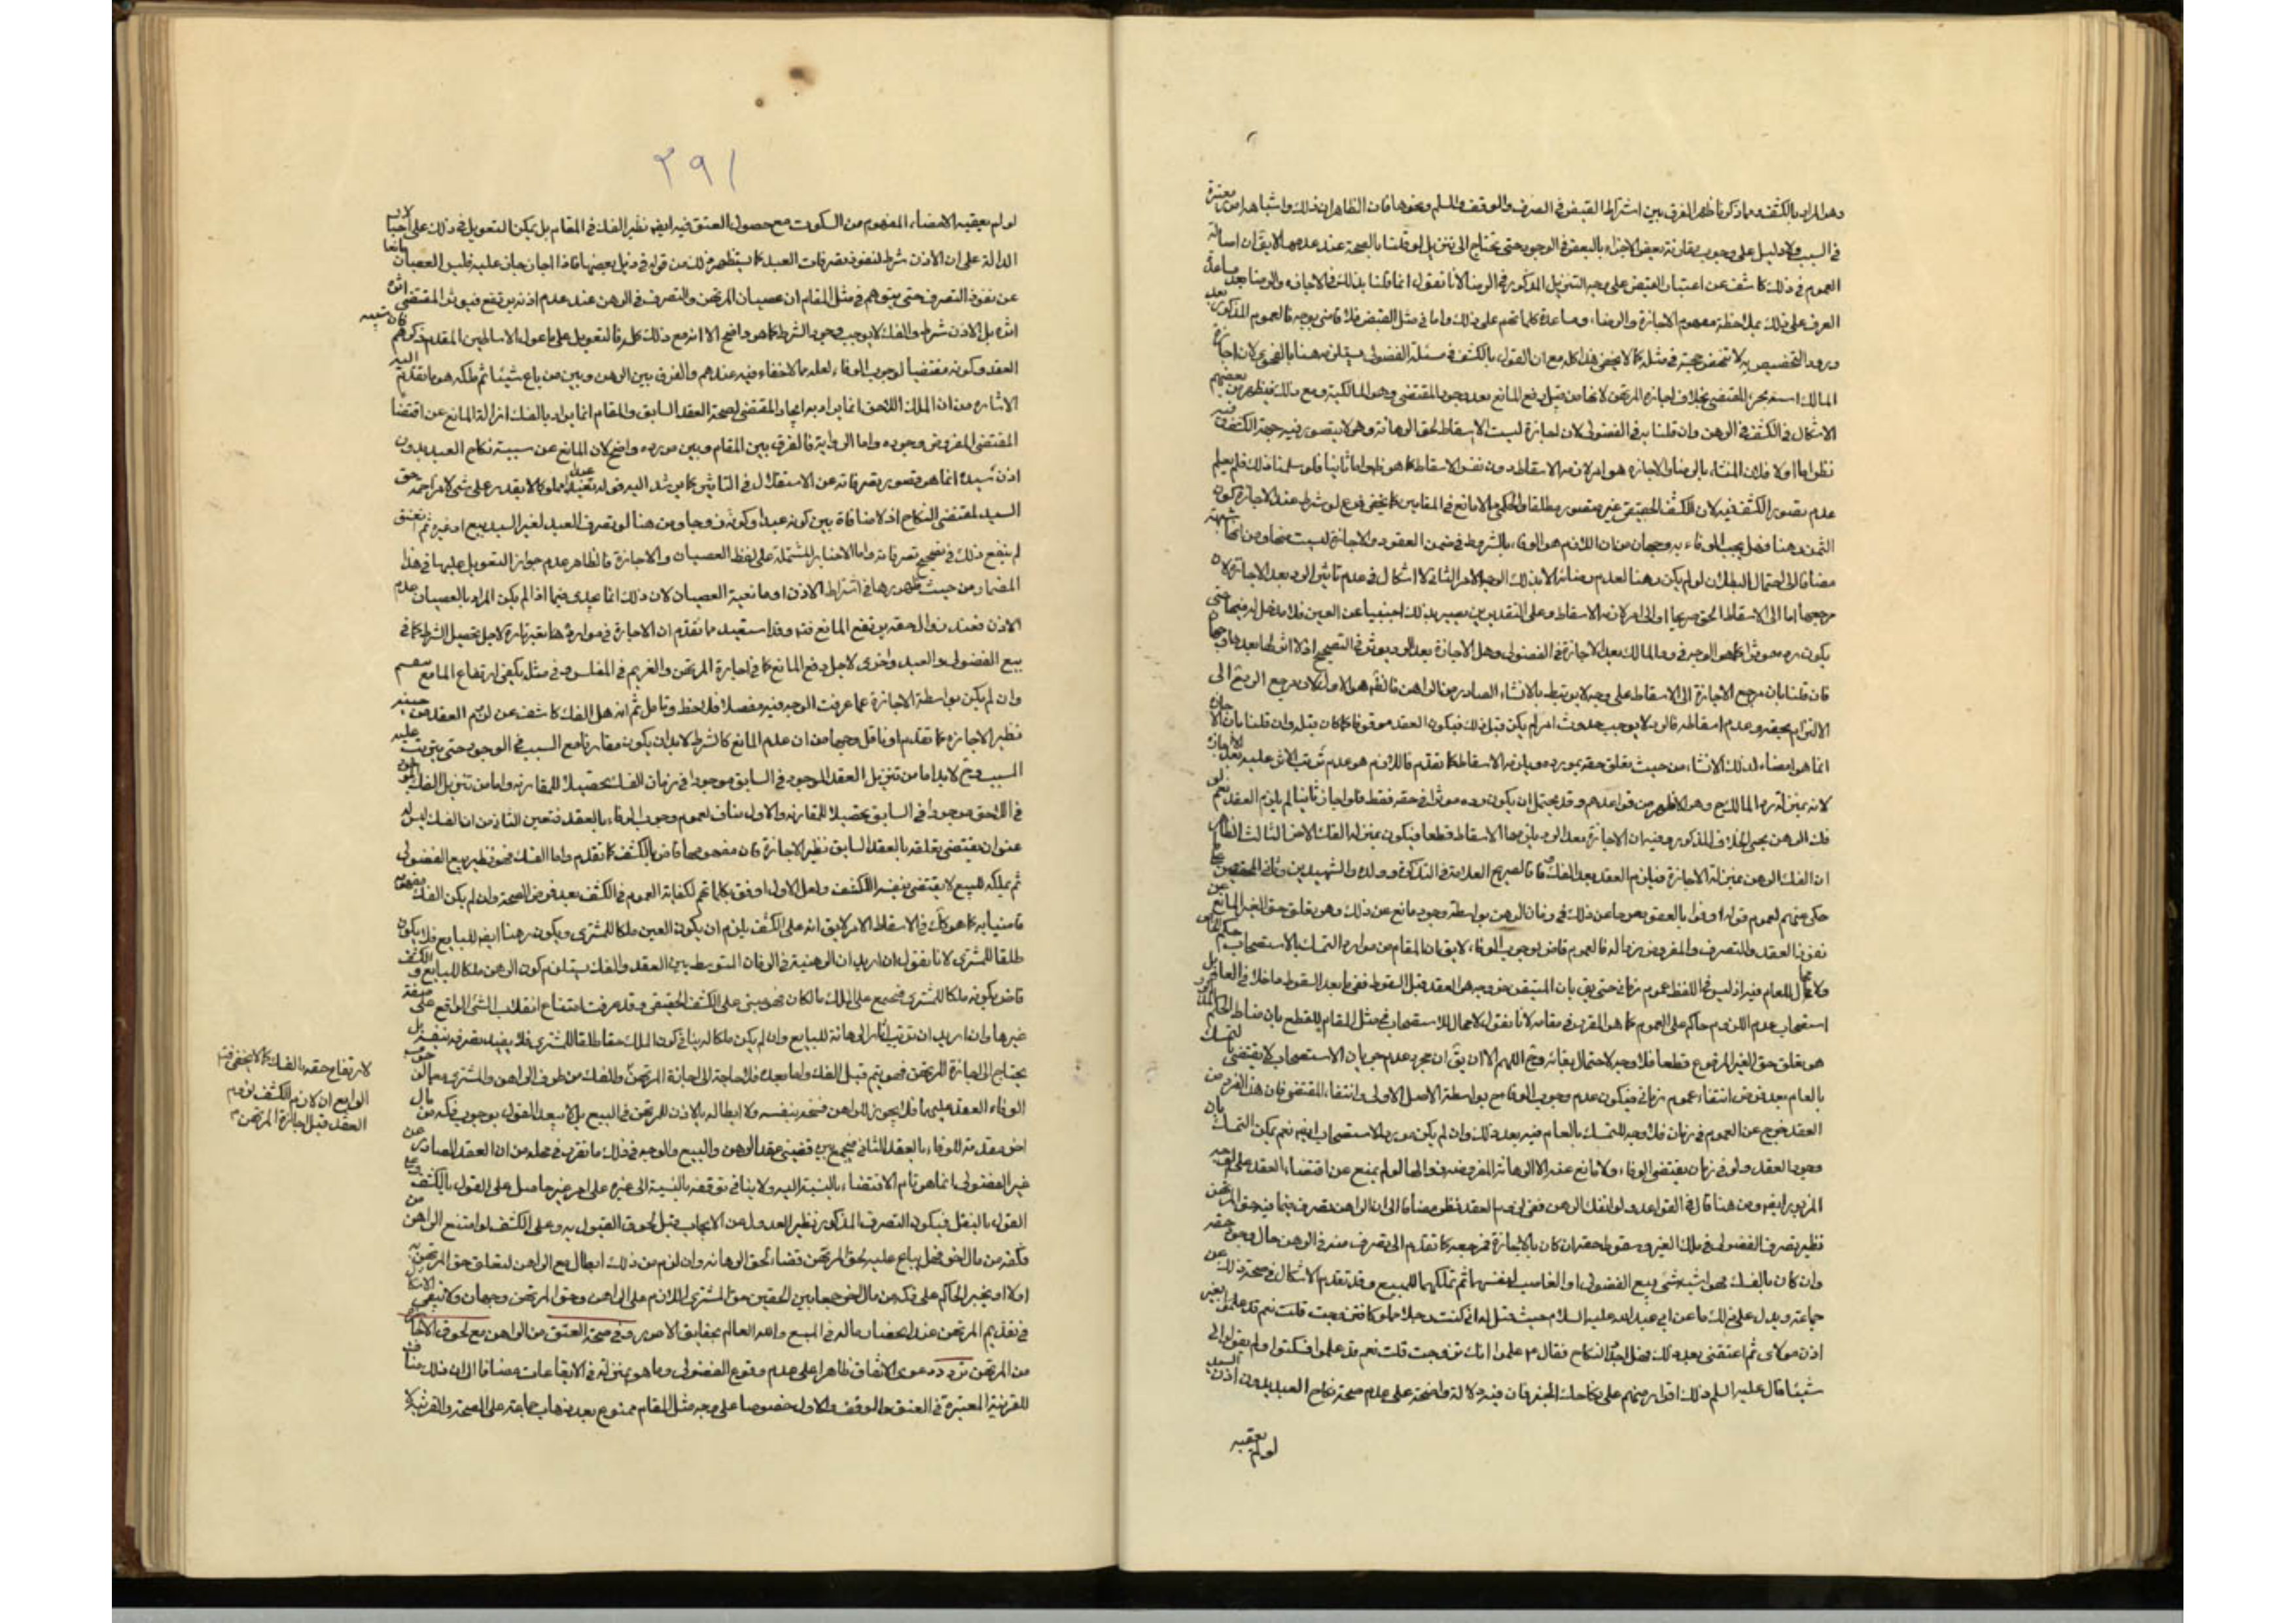 وهو المراد بالكشف وبما ذكرنا ظهر الفرق بين اشتراط القبض في الصرف والوقف والسلم ونحوها فان الظاهر ان ذلك واشباهه امور معتبرة
في السبب ولا دليل على وجوب مقارنة بعض الاجزاء بالبعض في الوجود حتى يحتاج الى تنزيل لو قلنا بالصحة عند عدمها لا يقال ان اصالة
العموم في ذلك كاشف عن اعتبار القبض على وجه التنزيل المذكور في الرضا لانا نقول انما قلنا بذلك في الاجازة والرضا بعد مساعدة
العرف على ذلك بملاحظة مفهوم الاجازة والرضاء ومساعدة كلماتهم على ذلك واما في مثل القبض فلا قاضي بوجه فالعموم المذكور بعد
ورود التخصيص به لا تنهض حجة في مثله كما لا يخفى هذا كله مع ان القول بالكشف في مسئلة الفضولي يستلزمه هنا بالفحوى لان اجازة
المالك اسند بجزء المقتضي بخلاف اجازة المرتهن لانها من قبيل رفع المانع بعد وجود المقتضي وهو المالكية ومع ذلك فيظهر من بعضهم
الاشكال في الكشف في الرهن وان قلنا به في الفضولي لان اجازة ليست الا اسقاط لحق الرهانة وهو لا يتصور فيه جهة الكشف وفيه
نظر اما اولا فلان المنشاء بالرضا والاجازة هو امر لازمه الاسقاط دون نفس الاسقاط كما هو ظ واما ثانيا فلو سلمنا ذلك فلم يعلم
عدم تصور الكشف فيه لان الكشف الحقيقي غير متصور مطلقا والحكمي لا مانع في المقامين كما يخفى فرع لو شرط عند الاجازة كون
الثمن رهنا فهل يجب الوفاء به وجهان من ان اللازم هو الوفاء بالشروط في ضمن العقود والاجازة ليست منها ومن انها شبهة
مضافا الى احتمال البطلان لو لم يكن رهنا لعدم رضائه الا بذلك الوجه الامر الثاني لا اشكال في عدم تاثير الرد بعد الاجازة لان
مرجعها اما الى الاسقاط الحق صريحا او الى امر لازمه الاسقاط وعلى التقديرين يصير بذلك اجنبيا عن العين فلا مدخل له فيها حتى
يكون رده موثرا كما هو الوجه في رد المالك بعد الاجازة في الفضولي وهل الاجازة بعد الرد يوثر في التصحيح او لا اثر لها بعده وجهان
فان قلنا بان مرجع الاجازة الى الاسقاط على وجه لا يرتبط بالانشاء الصادر من الراهن فالظ هو الاول لان مرجع الرد ح الى
الالتزام بحقه وعدم اسقاطه فالرد لا يوجب حدوث امر لم يكن قبل ذلك فيكون العقد موقوفا كما كان قبله وان قلنا بان الاجازة
انما هو امضاء لذلك الانشاء من حيث تعلق حقه بمورده وبانه الاسقاط كما تقدم فاللازم هو عدم ترتب الاثر عليه بعد الاجازة
لانه بمنزلة رد المالك ح وهو الاظهر من قواعدهم وقد يحتمل ان يكون رده موثرا في حقه فقط فلو اجاز ثانيا لم يلزم العقد نعم لو
فك الرهن يجئ الخلاف المذكور وفيه ان الاجازة بعد الرد يلزمها الاسقاط قطعا فيكون بمنزلة الفك الامر الثالث الظاهر
ان الفك الرهن بمنزلة الاجازة فيلزم العقد بعد الفك وفاقا لصريح العلامة في التذكرة وولده والشهيدين وثاني المحققين كما
حكى عنهم لعموم قوله اوفوا بالعقود خرجنا عن ذلك في زمان الرهن بواسطة وجود مانع عن ذلك وهو تعلق حق الغير المانع عن
نفوذ العقد والتصرف والمفروض زواله فالعموم قاض بوجوب الوفاء لا يقال ان المقام من موارد التمسك بالاستصحاب حكم الخاص
ولا مجال للعام فيه اذ ليس في اللفظ عموم زماني حتى يقال بان المتيقن خروجه هو العقد قبل السقوط فيبقى ما بعد السقوط داخلا في العام بل
استصحاب عدم اللزوم حاكم على العموم كما هو المقرر في مقامه لانا نقول لا مجال للاستصحاب في مثل المقام للقطع بان مناط الحكم المذكور
هو تعلق حق الغير المرفوع قطعا فلا وجه لاحتمال بقائه وفيه اللهم الا ان يقال ان مجرد عدم جريان الاستصحاب لا يقتضي التمسك
بالعام بعد فرض انتفاء عموم زماني فيكون عدم وجوب الوفاء ح بواسطة الاصل الاولى وانتفاء المقتضي فان هذا الفرد من
العقد خرج عن العموم في زمان فلا وجه للتمسك بالعام فيه بعد ذلك وان لم يكن موردا للاستصحاب ايضا نعم يمكن التمسك بان
وجود العقد ولو في زمان يقتضي الوفاء ولا مانع عنه الا الرهانة المفروض زوالها لو لم يمنع عن اقتضاء العقد على الوجه
المزبور ايضا ومن هنا قال في القواعد ولو افتك الرهن ففي لزوم العقد نظر مضافا الى ان الراهن تصرف فيما فيه حق المرتهن
نظير تصرف الفضولي في ملك الغير وسقوط حقه ان كان بالاجازة فمرجعه كما تقدم الى تصرف منه في الرهن حال وجود حقه
وان كان بالفك فهو اشبه شئ ببيع الفضولي او الغاصب لنفسهما ثم تملكهما للمبيع وقد تقدم الاشكال في صحة ذلك عن
جماعة ويدل على ذلك ما عن ابي عبد الله عليه السلام حيث قيل له اني كنت رجلا مملوكا فتزوجت بغير
اذن مولاى ثم اعتقني بعد ذلك فهل اجدد النكاح فقال ع علموا انك تزوجت قلت نعم قد علموا فسكتوا ولم يقولوا لي
شيئا قال عليه السلم ذلك اقرار منهم على نكاحك الخبر فان فيه دلالة واضحة على عدم صحة نكاح العبد بدون اذن السيد
لو لم يعقبه
٢٩١
لو لم يعقبه الامضاء المفهوم من السكوت مع حصول العتق فيه ايضا نظير الفك في المقام بل يمكن التعويل في ذلك على الاخبار
الدالة على ان الاذن شرط لنفوذ تصرفات العبد كما يستظهر ذلك من قوله في ذيل بعضها فاذا اجاز جاز عليه فليس العصيان مانعا
عن نفوذ التصرف حتى يتوهم في مثل المقام ان عصيان المرتهن والتصرف في الرهن عند عدم اذنه يرتفع فيوثر المقتضي اثره
اثره بل الاذن شرط والفك لا يوجب وجود الشرط كما هو واضح الا انه مع ذلك كله فالتعويل على ما عول الاساطين المقدم ذكرهم
العقد وكونه مقتضيا لوجوب الوفاء لعله مما لا خفاء فيه عندهم والفرق بين الرهن وبين من باع شيئا ثم ملكه هو ما تقدم اليه
الاشارة من ان الملك اللاحق انما يراد به ايجاد المقتضي لصحة العقد السابق والمقام انما يراد بالفك ازالة المانع عن اقتضاء
المقتضي المفروض وجوده واما الرواية فالفرق بين المقام وبين مورده واضح لان المانع عن سببية نكاح العبد بدون
اذن سيده انما هو قصور تصرفاته عن الاستقلال في التاثير كما يرشد اليه قوله تعالى عبدا مملوكا لا يقدر على شئ لا مزاحمة حق
السيد لمقتضى النكاح اذ لا منافاة بين كونه عبدا وكونه زوجا ومن هنا لو تصرف العبد لغير السيد ببيع او غيره ثم انعتق
لم ينفع ذلك في تصحيح تصرفاته واما الاخبار المشتملة على لفظ العصيان والاجازة فالظاهر عدم جواز التعويل عليها في هذا
المضمار من حيث ظهورها في اشتراط الاذن او مانعية العصيان لان ذلك انما يجدي فيما اذا لم يكن المراد بالعصيان عدم
الاذن فعند زوال حقه يرتفع المانع فتدبر وقد استفيد مما تقدم ان الاجازة في مواردها تعتبر تارة لاجل تحصيل الشرط كما في
بيع الفضولي والعبد واخرى لاجل رفع المانع كما في اجازة المرتهن والغريم في المفلس وفي مثله يكفي ارتفاع المانع
وان لم يكن بواسطة الاجازة كما عرفت الوجه فيه مفصلا فلاحظ وتامل ثم انه هل الفك كاشف عن لزوم العقد من حينه
نظير الاجازة كما تقدم او ناقل وجهان من ان عدم المانع كالشرط لا بد ان يكون مقارنا مع السبب في الوجود حتى يترتب عليه
المسبب وح لا بد اما من تنزيل العقد الموجود في السابق موجودا في زمان الفك تحصيلا للمقارنة واما من تنزيل الفك
في اللاحق موجودا في السابق تحصيلا للمقارنة والاول مناف لعموم وجوب الوفاء بالعقد فتعين الثاني من ان الفك ليس له
عنوان يقتضي تعلقه بالعقد السابق نظير الاجازة فان مفهومها قاض بالكشف كما تقدم واما الفك فهو نظير بيع الفضولي
ثم تملكه للمبيع لا يقتضي بنفسه الكشف ولعل الاول اوفق بكلماتهم لكفاية العموم في الكشف بعد فرض الصحة وان لم يكن الفك بمفهومه
قاضيا به كما هو كذلك في الاسقاط لا يقال انه على الكشف يلزم ان يكون العين ملكا للمشتري ويكون رهنا ايضا للبايع فلا يكون
طلقا للمشتري لانا نقول ان اريد ان الرهنية في الزمان المتوسط بين العقد والفك يستلزم كون الرهن ملكا للبايع والكشف
قاض بكونه ملكا للمشتري فيجتمع على الملك مالكان فهو مبني على الكشف الحقيقي وقد عرفت امتناع انقلاب الشئ الواقع على صفة
غيرها وان اريد ان ترتب اثار الرهانة للبايع وان لم يكن ملكا له ينافي كون الملك حقا طلقا للمشتري فلا يفيد تصرفه بنفسه بل
يحتاج الى اجازة المرتهن فهو يتم قبل الفك واما بعده فلا حاجة الى اجازة المرتهن
الوفاء العقد عليهما فلا يجوز للراهن فسخه بنفسه ولا ابطاله بالاذن للمرتهن في البيع بل لا يبعد القول بوجوب فكه من مال
اخر مقدمة للوفاء بالعقد الثاني فيجمع بين قضيتي عقد الرهن والبيع والوجه في ذلك ما تقرر في محله من ان العقد الصادر عن
غير الفضولي انما هو تام الاقتضاء بالنسبة اليه ولا ينافي توقفه بالنسبة الى غيره على امر غير حاصل على القول بالكشف
القول بالنقل فيكون التصرف المذكور نظير العدول عن الايجاب قبل لحوق القبول به وعلى الكشف لو امتنع الراهن من
فكه من مال اخر فهل يباع عليه لحق المرتهن قضاء لحق الرهانة وان لزم من ذلك ابطال بيع الراهن لتعلق حق المرتهن به
اولا او يجبر الحاكم على فكه من مال اخر جمعا بين الحقين حق المشتري اللازم على الراهن وحق المرتهن وجهان ولا ينبغي الاشكال
في تقديم المرتهن عند انحصار ماله في المبيع والله العالم بحقايق الامور وفي صحة العتق من الراهن مع لحوق الاجازة
من المرتهن تردد دعوى الاتفاق ظاهرا على عدم وقوع الفضولي وما هو بمنزلته في الايقاعات مضافا الى ان ذلك مناف
للقربة المعتبرة في العتق والوقف والاول خصوصا على وجه مثل المقام ممنوع بعد ذهاب جماعة على الصحة والقربة لا
لارتفاع حقه بالفك كما لا يخفى فتدبر
الرابع ان لازم الكشف لزوم
العقد قبل اجازة المرتهن